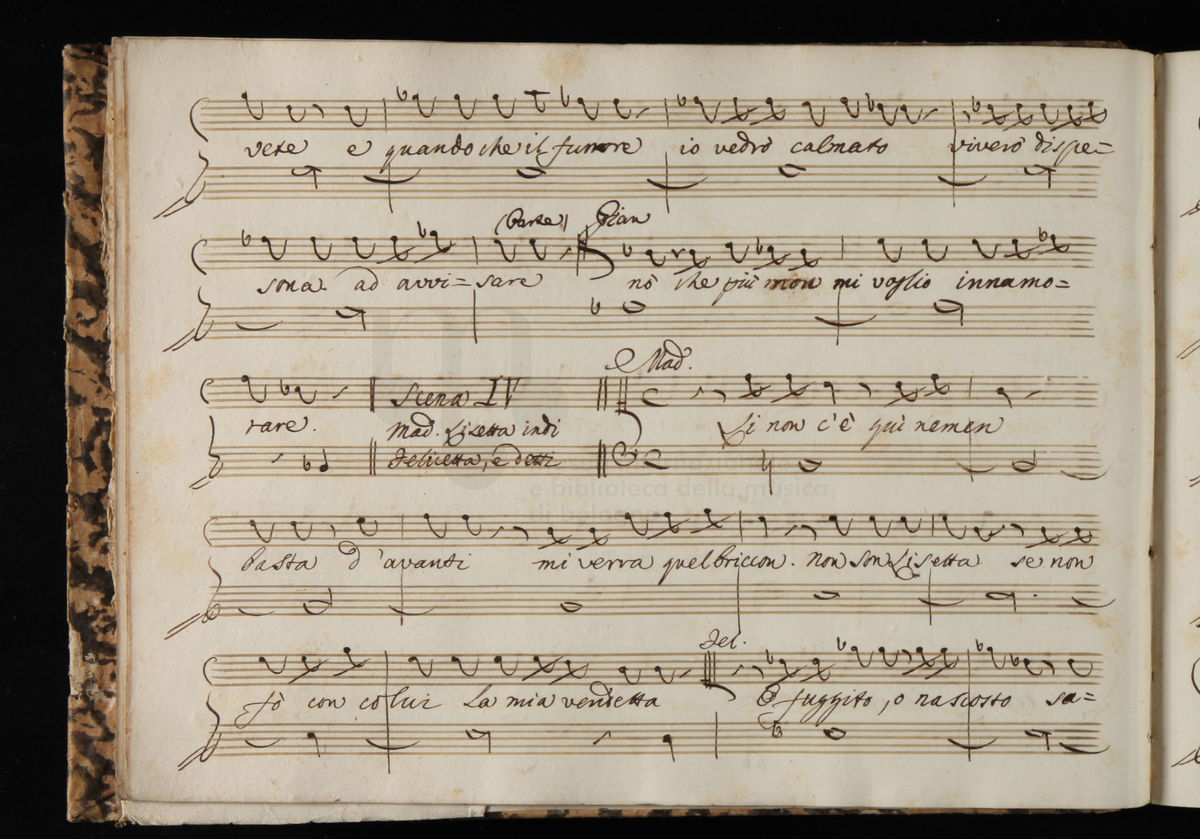 vete e quando che il furrore io vedrò calmato viverò dispe=
(Parte) Gian
sona ad avvi=sare nò che più mon mi voglio innamo=
Mad.
rare. Scena IV Si non c'è quì nemen
Mad. Lisetta indi
Felicetta, e detti
basta d'avanti mi verra quel briccon. non son Lisetta se non
Fel.
fò con colui la mia vendetta È fuggito, o nascosto sa=
e biblioteca della musica
di bologna